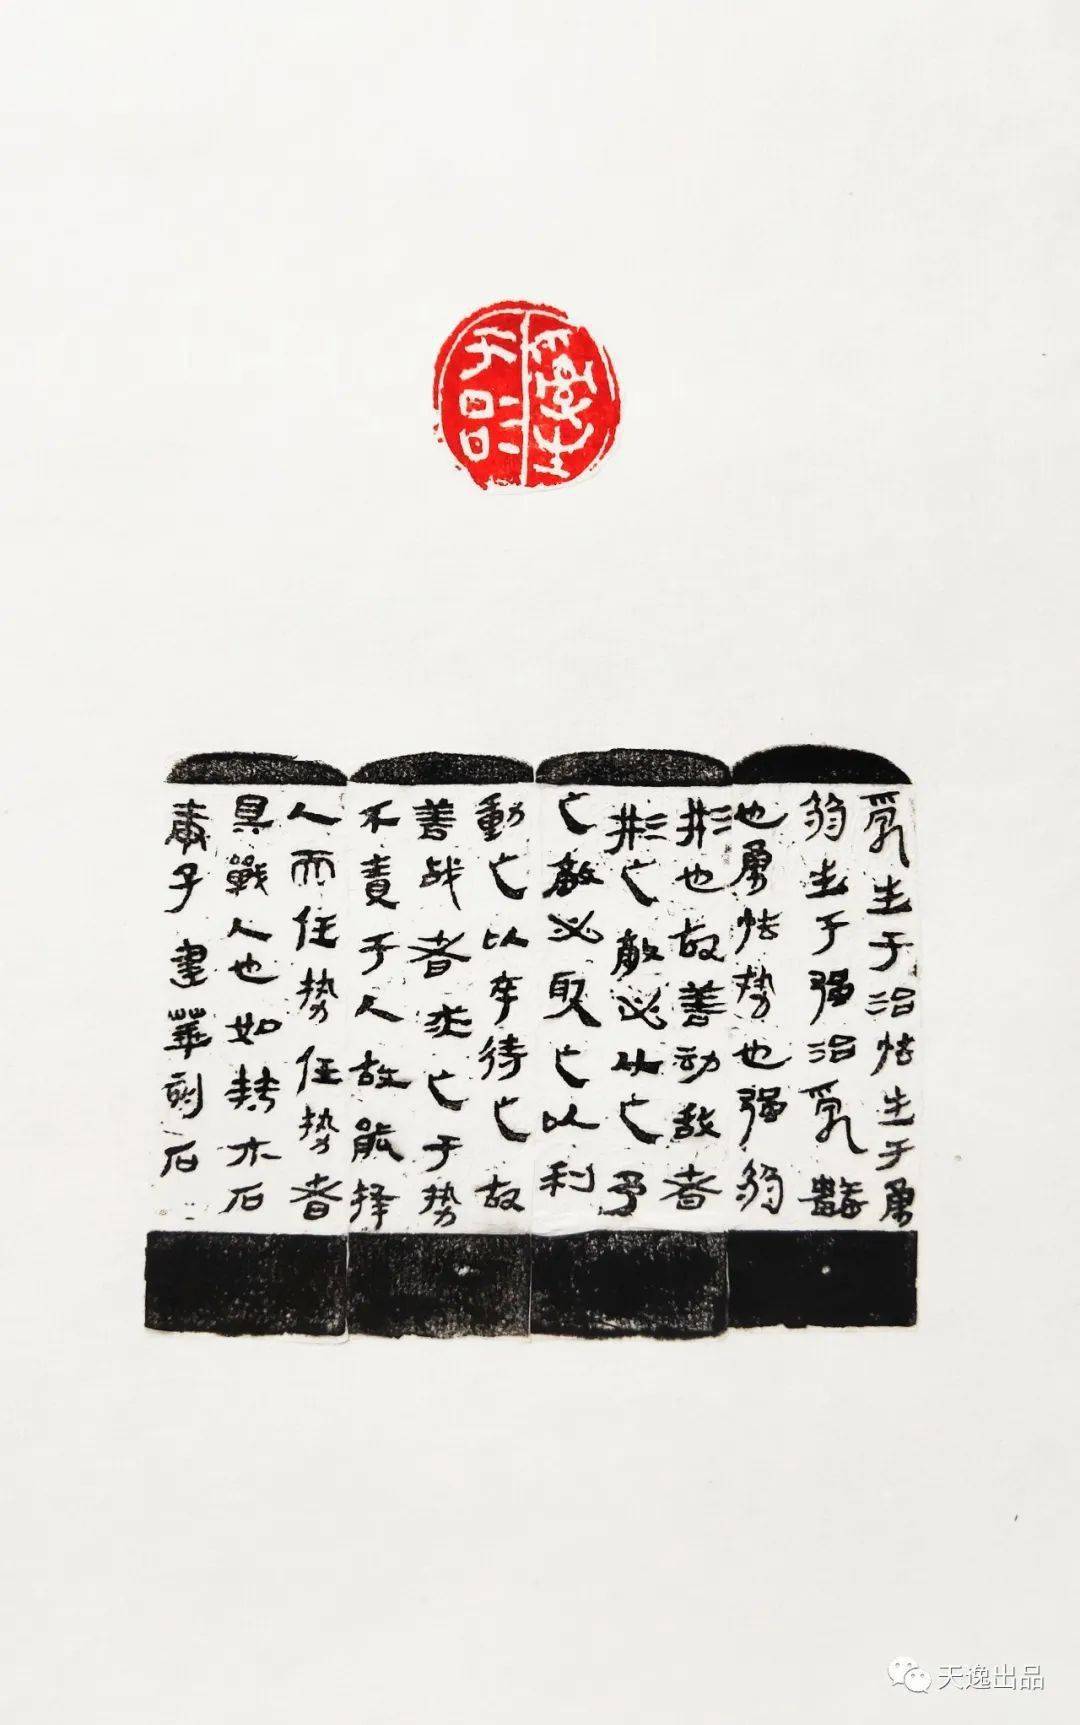 亂生
于治
亂生于治怯生于勇
弱生于强治亂數
也勇怯势也强弱
形也故善动敌者
形之敵必从之予
之敵必取之以利
動之以卒待之故
善战者求之于势
不責于人故能择
人而任势任势者
其戰人也如转木石
子華刻石
天逸出品